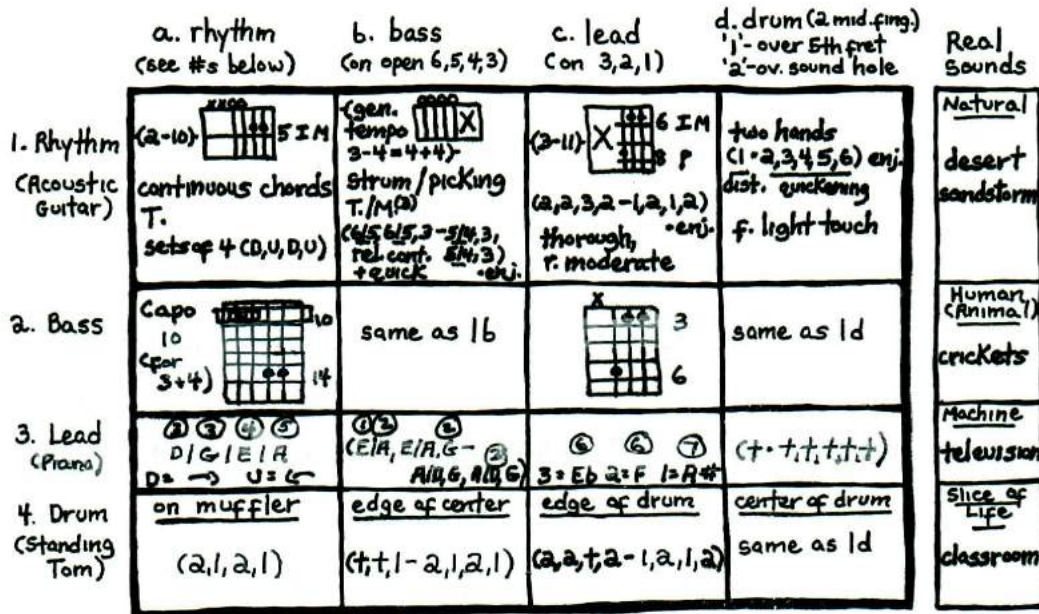 a. rhythm
(see #s below)
b. bass
(on open 6,5,4,3)
c. lead
(on 3,2,1)
d. drum (2 mid. fing.)
'1'- over 5th fret
'2'-ov. sound hole
Real
Sounds
1. Rhythm
(Acoustic
Guitar)
xxoo
(2-10)
5 I M
continuous chords
T.
sets of 4 (D,U,D,U)
(gen.
tempo
3-4=4+4)-
oooo
X
strum/picking
T./M(2)
(6/5,6/5,3-5/4,3,
rel. cont. 5/4,3)
+ quick -enj.
(3-11)
X
6 I M
8 P
(2,2,3,2-1,2,1,2)
-enj.
thorough,
r. moderate
two hands
(1-2,3,4,5,6) enj.
dist. quickening
f. light touch
Natural
desert
sandstorm
2. Bass
Capo
10
(for
3+4)
10
14
same as 1b
X
3
6
same as 1d
Human,
(Animal)
crickets
3. Lead
(Piano)
② ③ ④ ⑤
D/G/E/A
D= → U= ←
① ② ②
(E/A, E/A, G-
②
A/D,G, A/D,G)
⑥ ⑥ ⑦
3=Eb 2=F 1=A#
(t-t,t,t,t,t)
Machine
television
4. Drum
(Standing
Tom)
on muffler
(2,1,2,1)
edge of center
(t,t,1-2,1,2,1)
edge of drum
(2,2,t,2-1,2,1,2)
center of drum
same as 1d
Slice of
Life
classroom